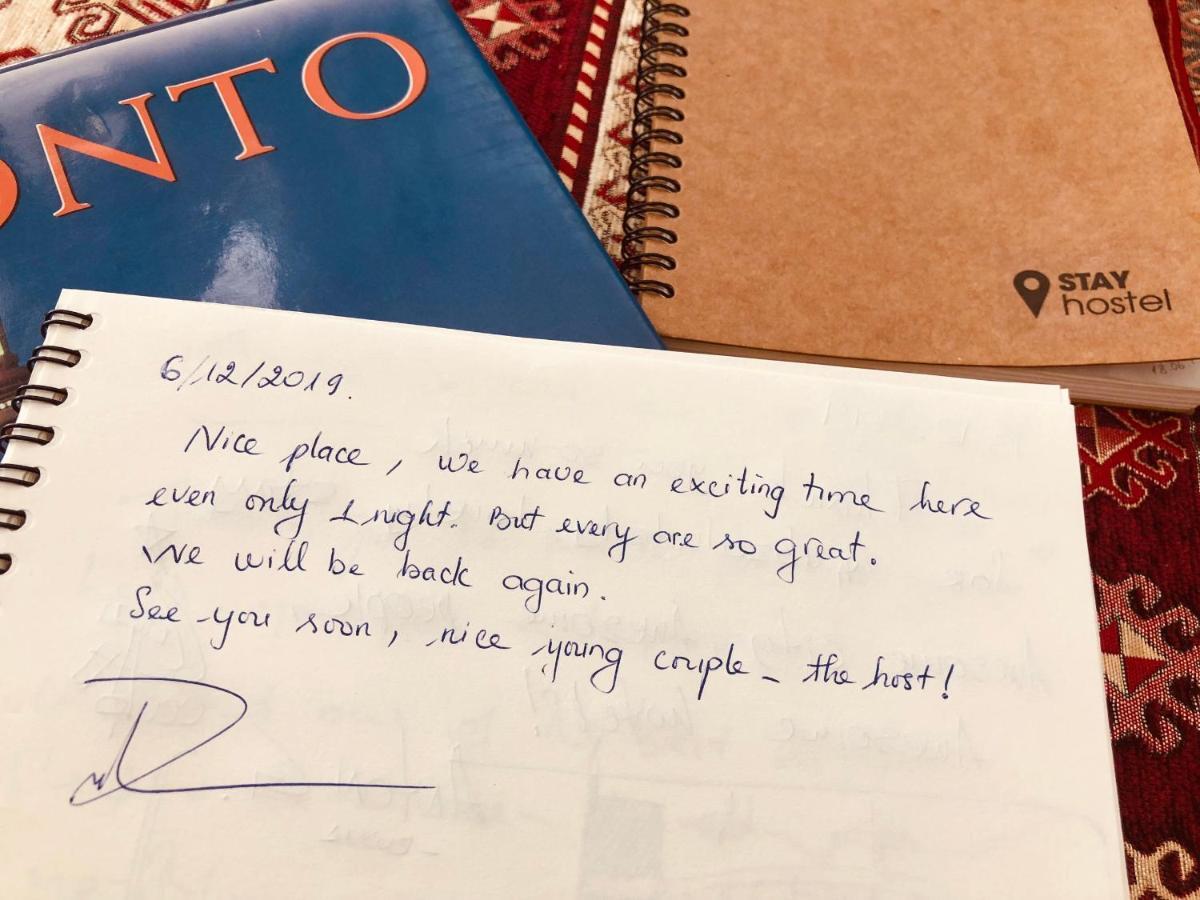 ONTO
STAY
hostel
18.06
6/12/2019.
Nice place, we have an exciting time here
even only 1 night. But every are so great.
We will be back again.
See you soon, nice young couple - the host!